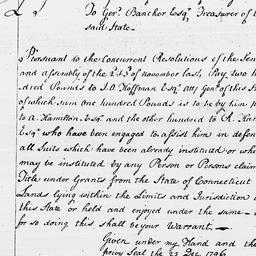 To Ger. Bancker Esqr. Treasurer of t
said State.
Pursuant to the Concurrent Resolutions of the Sen
and assembly of the 2 & 3 of november last, Pay, two h
dred Pounds to J. O. Hoffman Esqr. atty Genl. of this St
of which sum one hundred Pounds is to be by him p
to a. Hamilton Esqr. and the other hundred to R. Har
Esqr. who have been engaged to assist him in defen
all Suits which have been already instituted or whi
may be instituted by any Person or Persons claim
Title under Grants from the State of Connecticut
Lands lying within the Limits and Jurisdiction o
this State or held and enjoyed under the same — a
for so doing this shall be your Warrant. —
Given under my Hand and the
privy Seal the 22 Dec. 1796